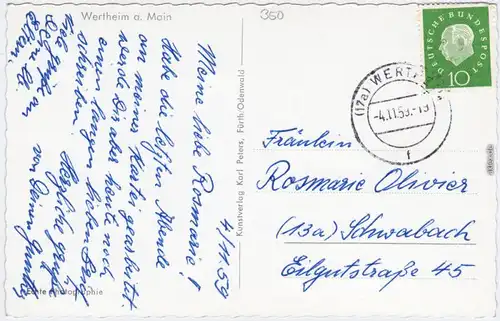 Wertheim a. Main
350
4/11.59
Meine liebe Rosmarie!
Habe die letzten Abende
an meiner Karte gearbeitet.
werde Dir aber heute noch
einen langen lieben Brief
schreiben.
Herzliche Grüße
von Deinem
Viele
Grüße an
Eltern.
Echte Photographie
Kunstverlag Karl Peters, Fürth/Odenwald
DEUTSCHE BUNDESPOST
10
(17a) WERTHEIM
-4.11.59.-19
f
Fräulein
Rosmarie Olivier
(13a) Schwabach
Eilgutstraße 45